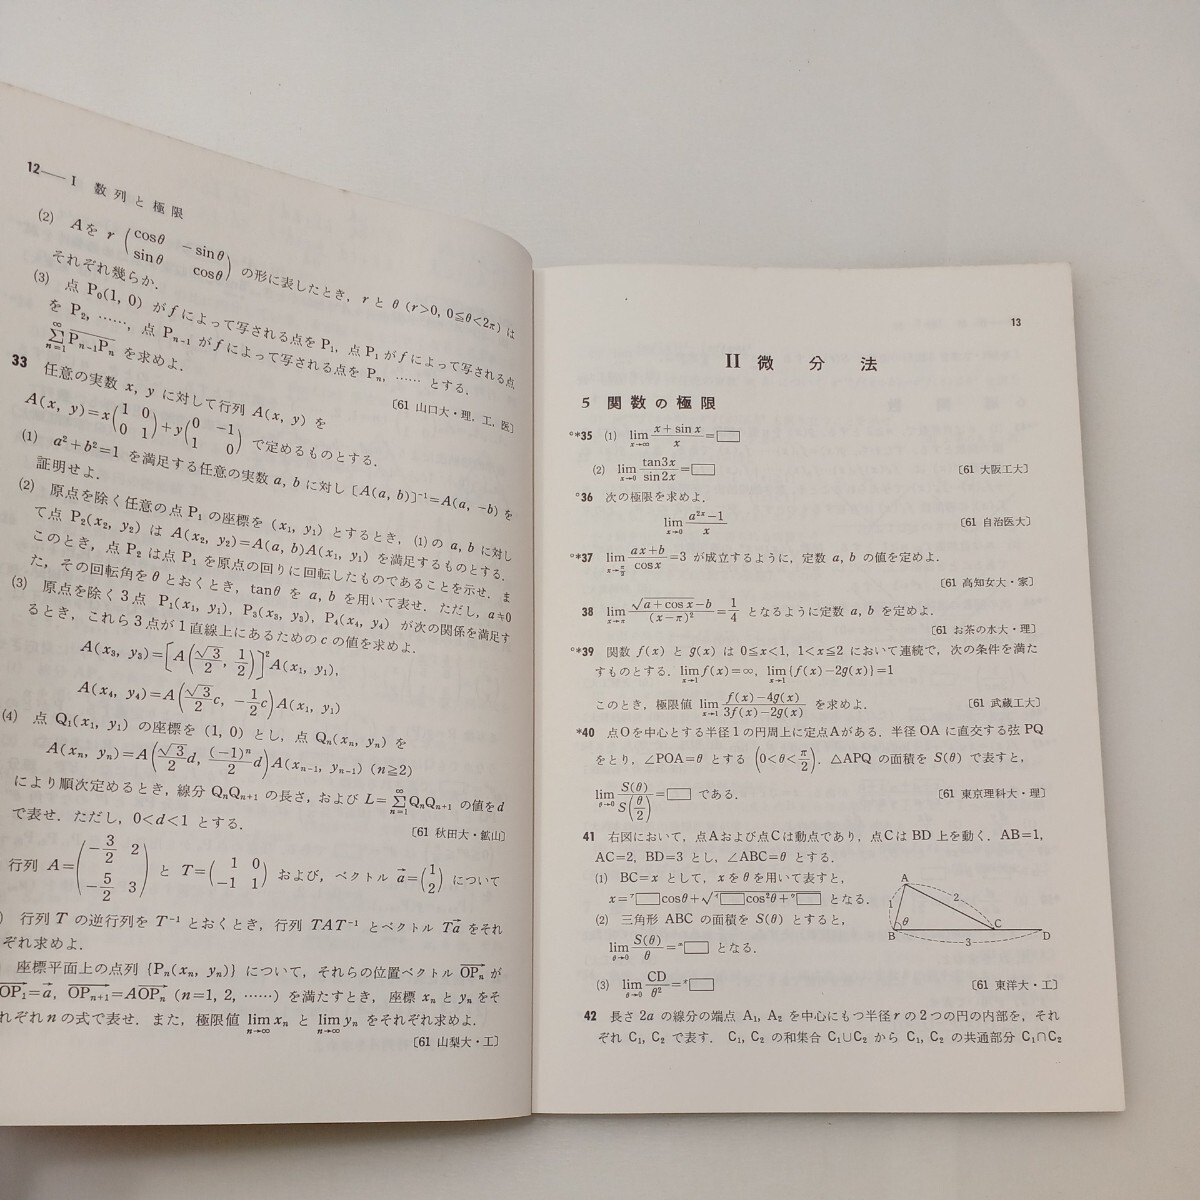 12── I 数列と極限
(2) Aを r (cosθ −sinθ
sinθ cosθ) の形に表したとき，rとθ (r>0, 0≦θ<2π) は
それぞれ幾らか．
(3) 点 P₀(1, 0) がfによって写される点をP₁，点P₁がfによって写される点
を P₂, ……，点 Pₙ₋₁ がfによって写される点を Pₙ, …… とする．
∑_{n=1}^{∞} P̅ₙ₋₁P̅ₙ を求めよ．
〔61 山口大・理，工，医〕
33 任意の実数 x, y に対して行列 A(x, y) を
A(x, y)=x(1 0
0 1)+y(0 −1
1 0) で定めるものとする．
(1) a²+b²=1 を満足する任意の実数 a, b に対し [A(a, b)]⁻¹=A(a, −b) を
証明せよ．
(2) 原点を除く任意の点P₁の座標を (x₁, y₁) とするとき，(1)の a, b に対し
て点 P₂(x₂, y₂) は A(x₂, y₂)=A(a, b)A(x₁, y₁) を満足するものとする．
このとき，点P₂は点P₁を原点の回りに回転したものであることを示せ．ま
た，その回転角をθとおくとき，tanθを a, b を用いて表せ．ただし，a≠0
(3) 原点を除く3点 P₁(x₁, y₁), P₃(x₃, y₃), P₄(x₄, y₄) が次の関係を満足す
るとき，これら3点が1直線上にあるためのcの値を求めよ．
A(x₃, y₃)=[A(√3/2, 1/2)]²A(x₁, y₁),
A(x₄, y₄)=A(√3/2 c, −1/2 c)A(x₁, y₁)
(4) 点 Q₁(x₁, y₁) の座標を (1, 0) とし，点 Qₙ(xₙ, yₙ) を
A(xₙ, yₙ)=A(√3/2 d, (−1)ⁿ/2 d)A(xₙ₋₁, yₙ₋₁) (n≧2)
により順次定めるとき，線分 QₙQₙ₊₁ の長さ，および L=∑_{n=1}^{∞}QₙQₙ₊₁ の値をd
で表せ．ただし，0<d<1 とする．
〔61 秋田大・鉱山〕
行列 A=(−3/2 2
−5/2 3) と T=(1 0
−1 1) および，ベクトル a⃗=(1
2) について
) 行列 T の逆行列を T⁻¹ とおくとき，行列 TAT⁻¹ とベクトル Ta⃗ をそれ
ぞれ求めよ．
座標平面上の点列 {Pₙ(xₙ, yₙ)} について，それらの位置ベクトル OPₙ→ が
OP₁→=a⃗, OPₙ₊₁→=AOPₙ→ (n=1, 2, ……) を満たすとき，座標 xₙ と yₙ をそ
れぞれnの式で表せ．また，極限値 lim_{n→∞} xₙ と lim_{n→∞} yₙ をそれぞれ求めよ．
〔61 山梨大・工〕
13
II 微分法
5 関数の極限
°*35 (1) lim_{x→∞} (x+sin x)/x=□
(2) lim_{x→0} tan3x/sin2x=□ 〔61 大阪工大〕
°36 次の極限を求めよ．
lim_{x→0} (a²ˣ−1)/x 〔61 自治医大〕
°*37 lim_{x→π/2} (ax+b)/cosx=3 が成立するように，定数 a, b の値を定めよ．
〔61 高知女大・家〕
38 lim_{x→π} (√(a+cos x)−b)/(x−π)²=1/4 となるように定数 a, b を定めよ．
〔61 お茶の水大・理〕
°*39 関数 f(x) と g(x) は 0≦x<1, 1<x≦2 において連続で，次の条件を満た
すものとする．lim_{x→1} f(x)=∞, lim_{x→1} {f(x)−2g(x)}=1
このとき，極限値 lim_{x→1} (f(x)−4g(x))/(3f(x)−2g(x)) を求めよ． 〔61 武蔵工大〕
*40 点Oを中心とする半径1の円周上に定点Aがある．半径 OA に直交する弦 PQ
をとり，∠POA=θ とする (0<θ<π/2)．△APQ の面積を S(θ) で表すと，
lim_{θ→0} S(θ)/S(θ/2)=□ である． 〔61 東京理科大・理〕
41 右図において，点Aおよび点Cは動点であり，点Cは BD 上を動く．AB=1,
AC=2, BD=3 とし，∠ABC=θ とする．
(1) BC=x として，xをθを用いて表すと，
x=ア□cosθ+√(イ□cos²θ+ウ□) となる．
(2) 三角形 ABC の面積を S(θ) とすると，
lim_{θ→0} S(θ)/θ=エ□ となる．
(3) lim_{θ→0} CD/θ²=オ□ 〔61 東洋大・工〕
A
1
2
θ
B
C
D
3
42 長さ 2a の線分の端点 A₁, A₂ を中心にもつ半径rの2つの円の内部を，それ
ぞれ C₁, C₂ で表す．C₁, C₂ の和集合 C₁∪C₂ から C₁, C₂ の共通部分 C₁∩C₂